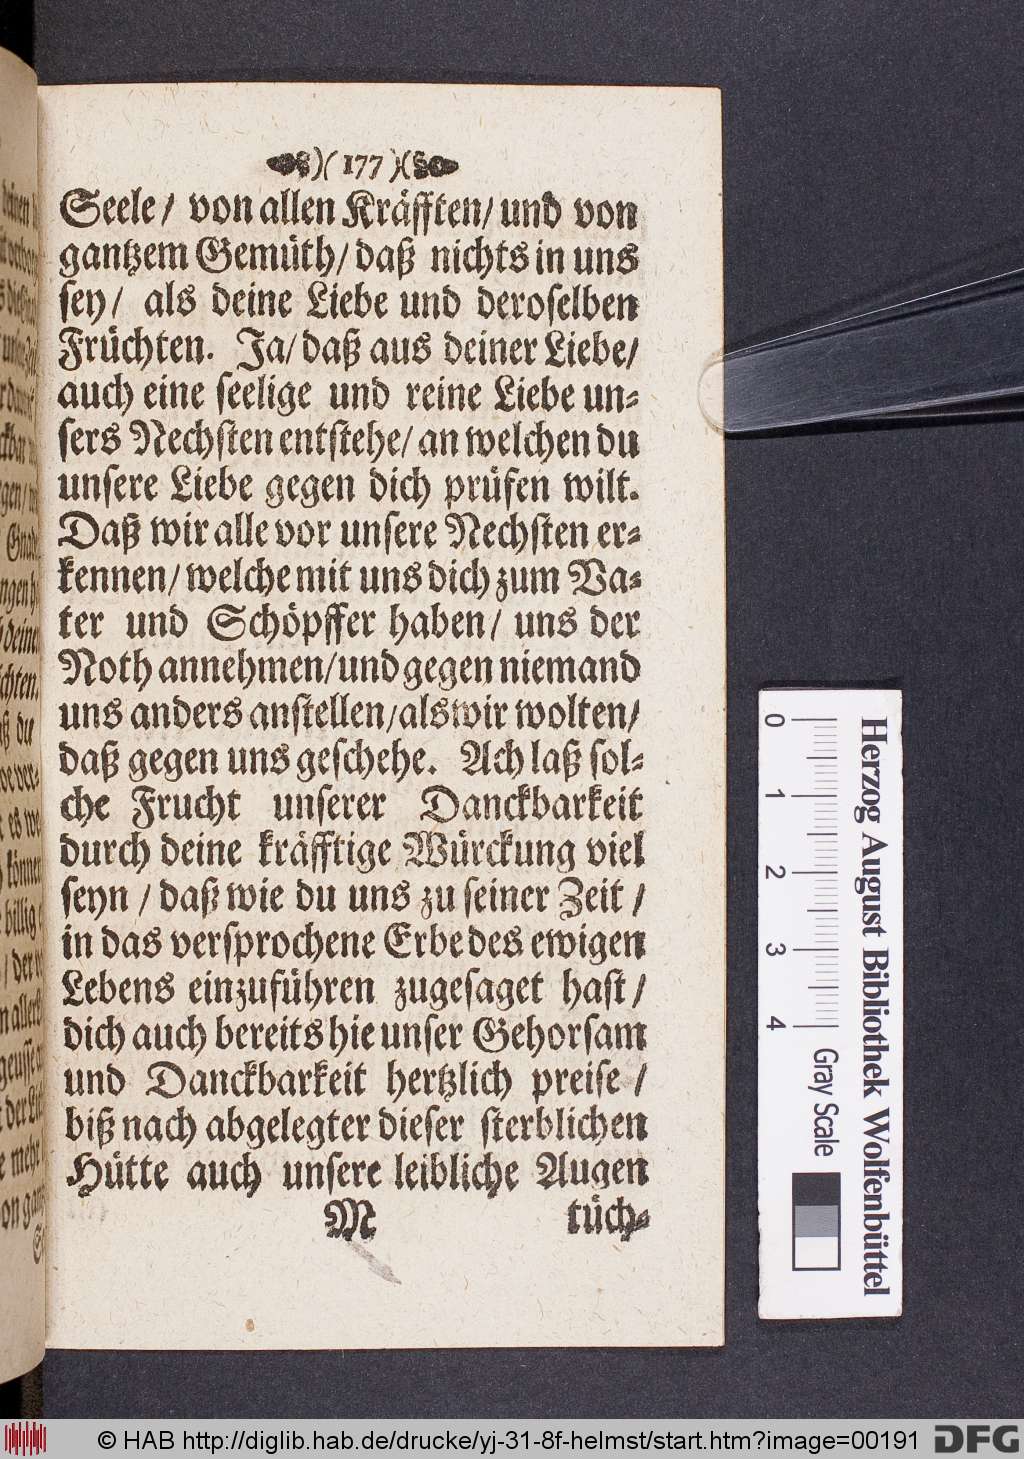 )( 177 )(
Seele/ von allen Kräfften/ und von
gantzem Gemüth/ daß nichts in uns
sey/ als deine Liebe und deroselben
Früchten. Ja/ daß aus deiner Liebe/
auch eine seelige und reine Liebe un-
sers Nechsten entstehe/ an welchen du
unsere Liebe gegen dich prüfen wilt.
Daß wir alle vor unsere Nechsten er-
kennen/ welche mit uns dich zum Va-
ter und Schöpffer haben/ uns der
Noth annehmen/ und gegen niemand
uns anders anstellen/ als wir wolten/
daß gegen uns geschehe. Ach laß sol-
che Frucht unserer Danckbarkeit
durch deine kräfftige Würckung viel
seyn / daß wie du uns zu seiner Zeit /
in das versprochene Erbe des ewigen
Lebens einzuführen zugesaget hast/
dich auch bereits hie unser Gehorsam
und Danckbarkeit hertzlich preise /
biß nach abgelegter dieser sterblichen
Hütte auch unsere leibliche Augen
M tüch-
0 1 2 3 4 Gray Scale
Herzog August Bibliothek Wolfenbüttel
© HAB http://diglib.hab.de/drucke/yj-31-8f-helmst/start.htm?image=00191
DFG